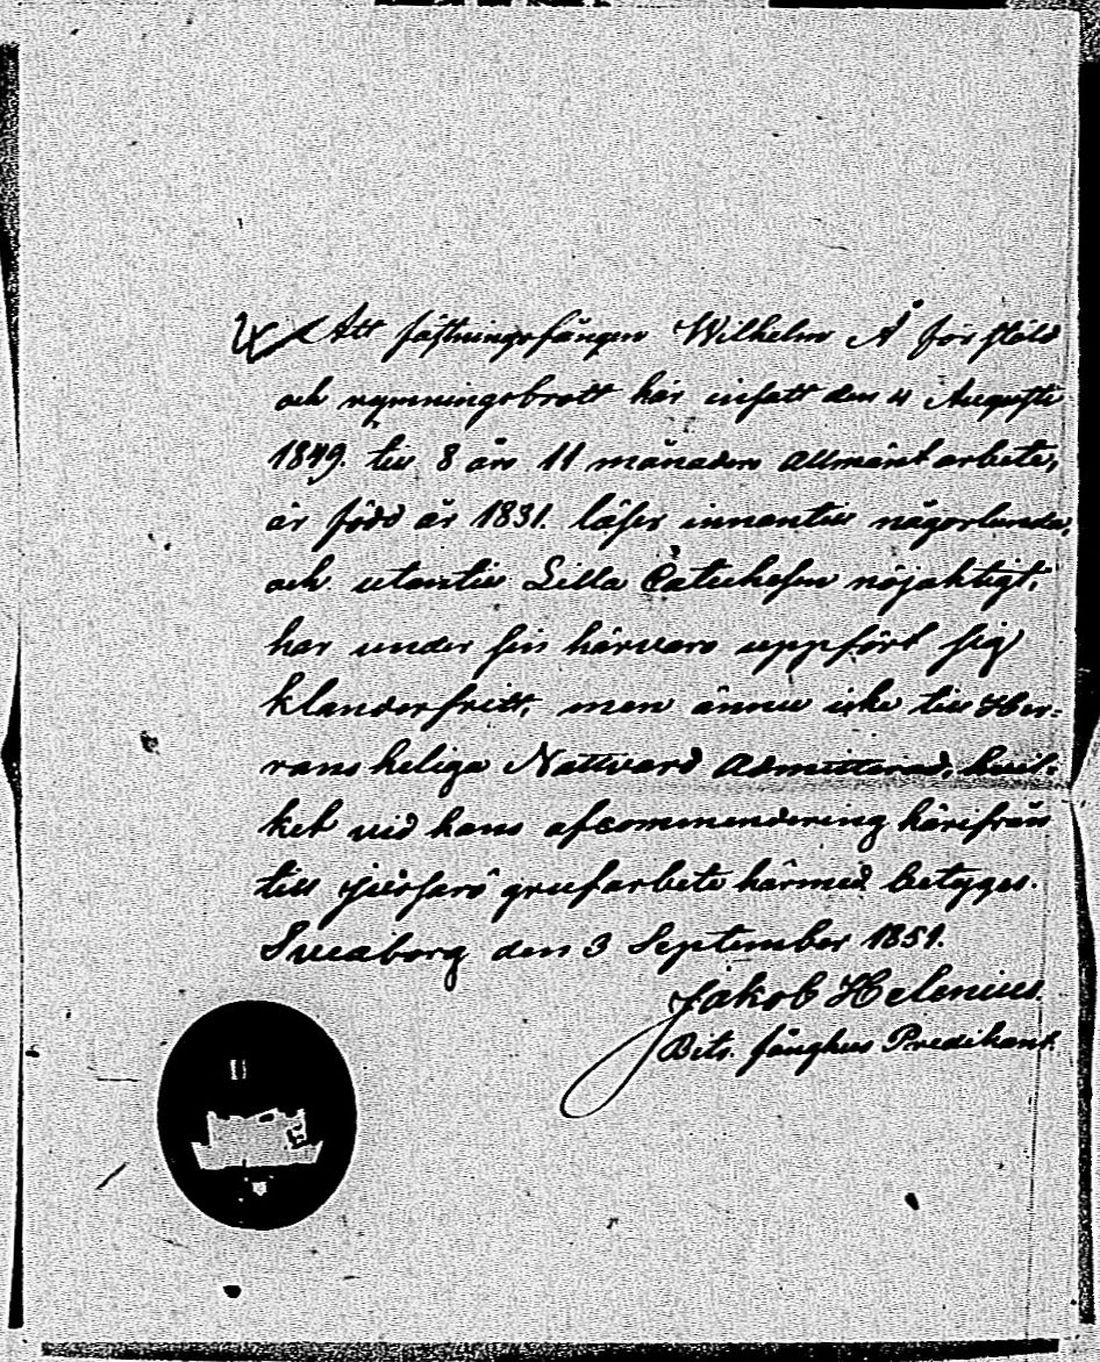 Att fästningsfången Wilhelm Å för stöld
och rymningsbrott här insatt den 4 Augusti
1849. till 8 års 11 månaders allmänt arbete,
är född år 1831. läser innantill någorlunda,
och utantill Lilla Catechesen nöjaktigt,
har under sin härvaro uppfört sig
klanderfritt, men ännu icke till Her=
rans heliga Nattvard Admitterad; hvil=
ket vid hans afcommendering härifrån
till Jussarö grufarbete härmed betygas.
Sveaborg den 3 September 1851.
Jakob Helenius.
Bitr. fånghus Predikant.